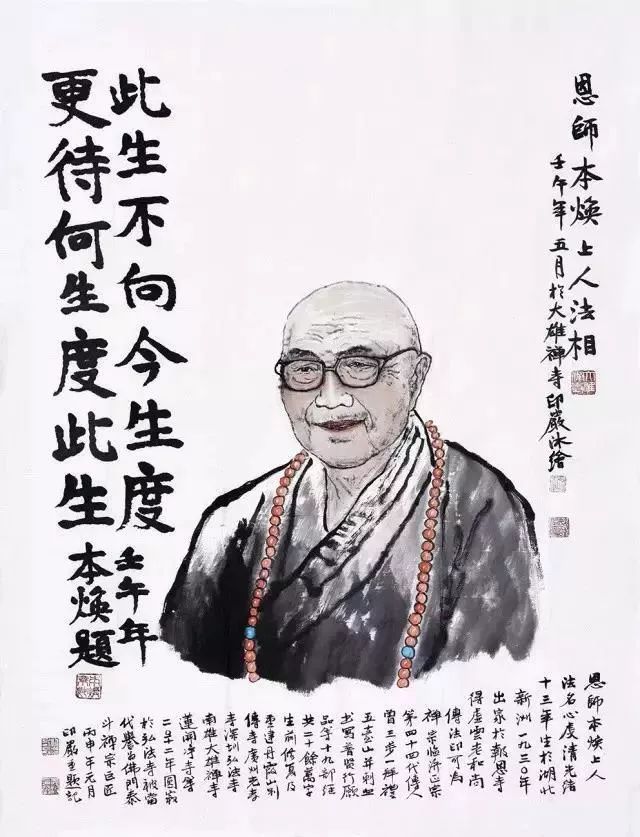 恩師本煥上人法相
壬午年五月於大雄禪寺印嚴沐繪
此生不向今生度壬午年
更待何生度此生本煥題
恩師本煥上人
法名心虔清光緒
十三年生於湖北
新洲一九三〇年
出家於報恩寺
得虛雲老和尚
傳法印可為
禪宗臨濟正宗
第四十四代傳人
曾三步一拜禮
五臺山并刺血
書寫普賢行願
品等十九部經
共二十餘萬字
生前修復及
重建丹霞山別
傳寺廣州光孝
寺深圳弘法寺
南雄大雄禪寺
蓮開淨寺等
二〇一二年圓寂
於弘法寺被當
代譽為佛門泰
斗禪宗巨匠
丙申年元月
印嚴重題記